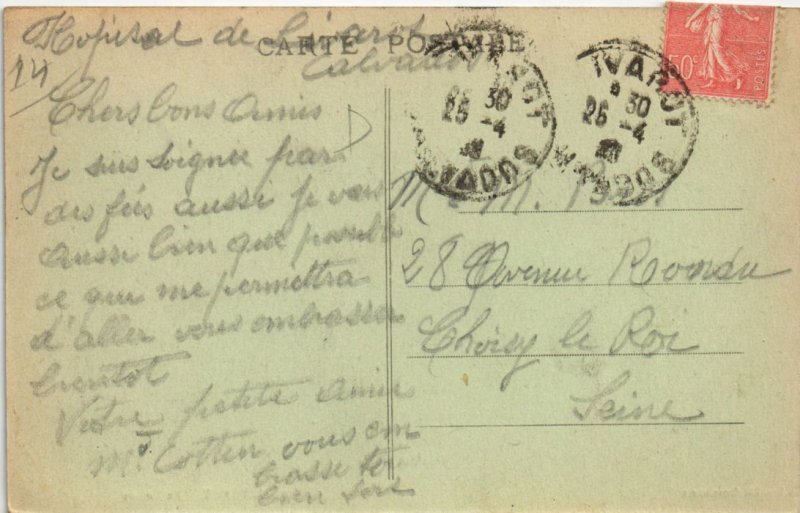 Hopital de Livarot
CARTE POSTALE
Calvados
14
Chers bons amis
Je suis soignée par
des fées aussi je vais
aussi bien que possible
ce qui me permettra
d'aller vous embrasser
bientot
Votre petite amie
Mr Cotten vous em
brasse
bien fort
LIVAROT
30
26 -4
CALVADOS
LIVAROT
30
26 -4
CALVADOS
50c
POSTES
M. M.
28 Avenue
Choisy le Roi
Seine